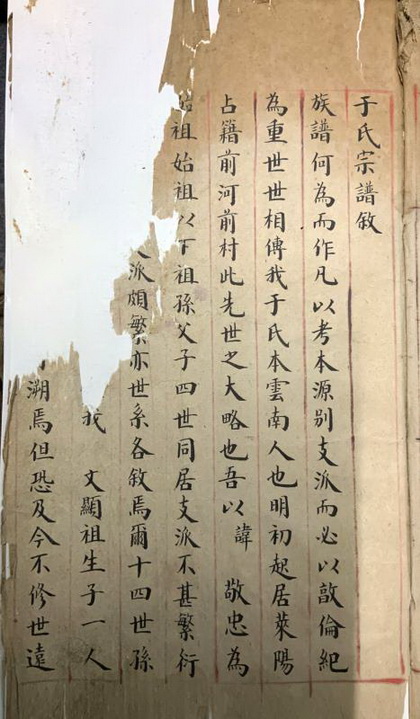 于氏宗譜敘
族譜何為而作凡以考本源别支派而必以敦倫紀
為重世世相傳我于氏本雲南人也明初起居萊陽
占籍前河前村此先世之大略也吾以諱敬忠為
始祖始祖以下祖孫父子四世同居支派不甚繁衍
派頗繁亦世系各敘焉爾十四世孫
我文顯祖生子一人
溯焉但恐及今不修世遠